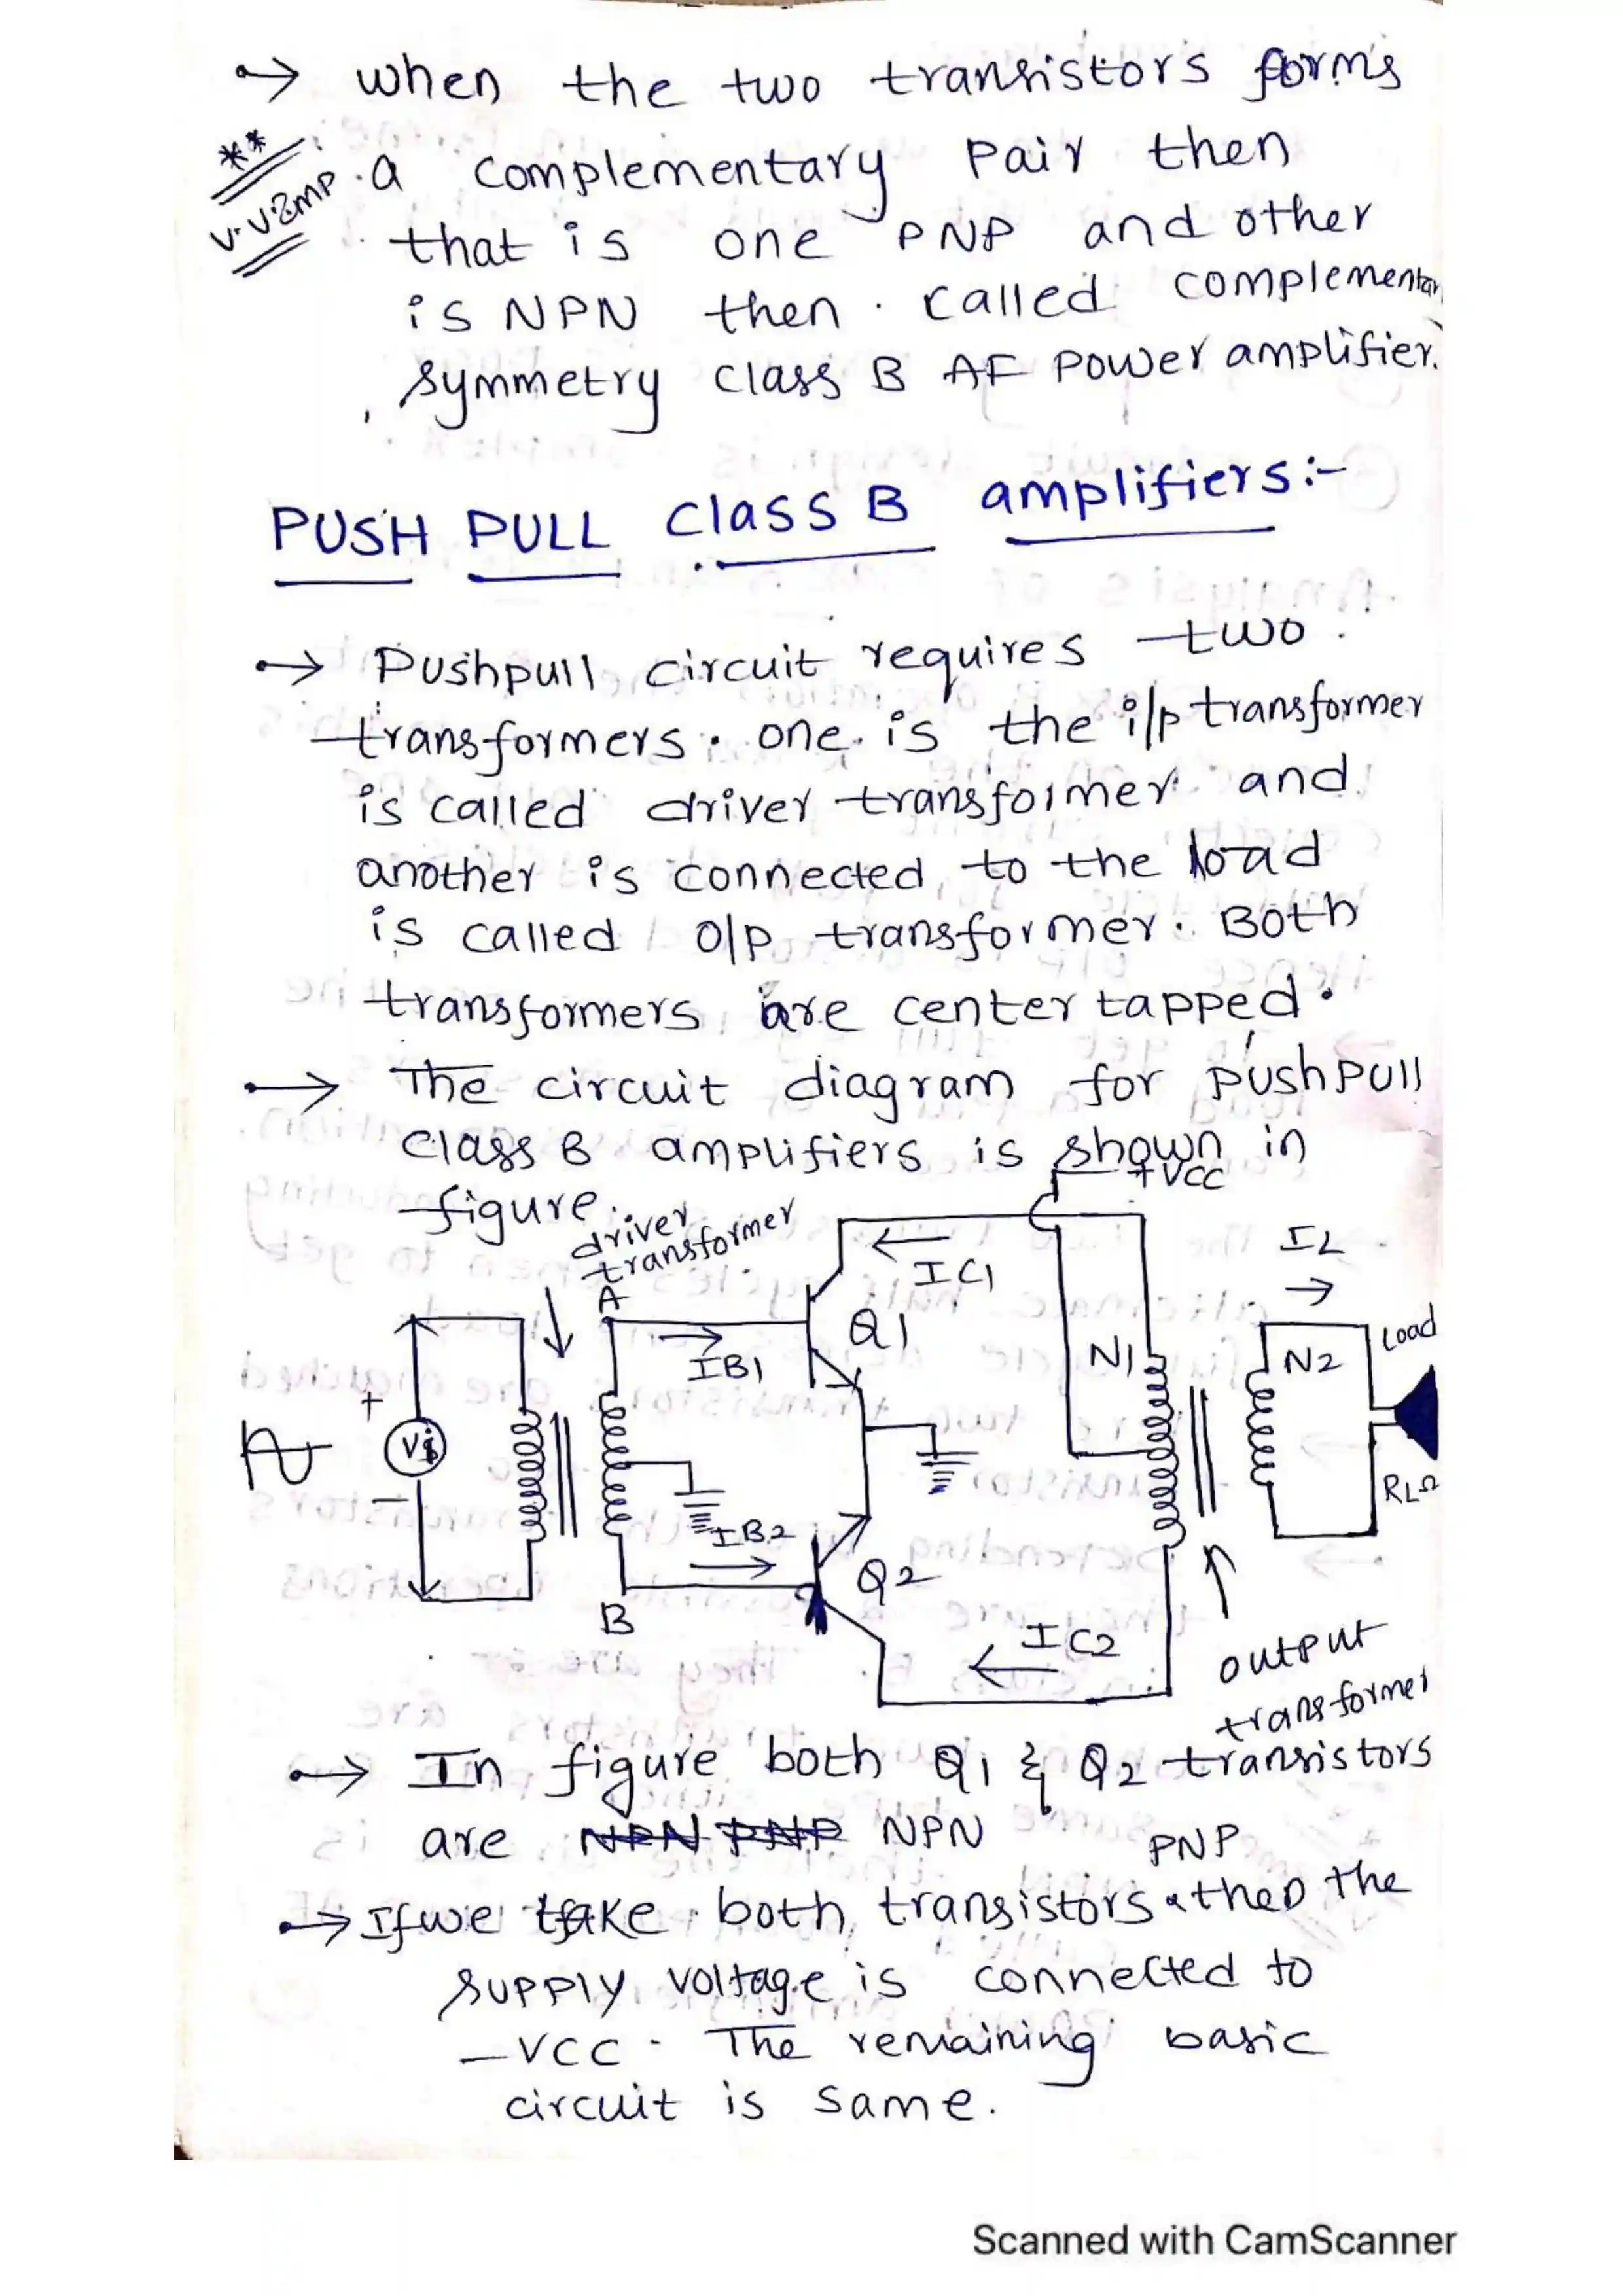 → when the two transistors forms
** V.V.Imp
a complementary pair then
that is one PNP and other
is NPN then called complementary
symmetry class B AF power amplifier.
PUSH PULL class B amplifiers:-
→ Pushpull circuit requires two
transformers. one is the i/p transformer
is called driver transformer and
another is connected to the load
is called o/p transformer. Both
transformers are center tapped.
→ The circuit diagram for pushpull
class B amplifiers is shown in
figure.
+VCC
driver
transformer
A
IC1
IL
Q1
IB1
N1
N2
Load
+
Vs
−
RLΩ
IB2
Q2
B
IC2
output
transformer
→ In figure both Q1 & Q2 transistors
are NPN PNP NPN
PNP
→ If we take both transistors then the
supply voltage is connected to
−VCC. The remaining basic
circuit is same.
Scanned with CamScanner